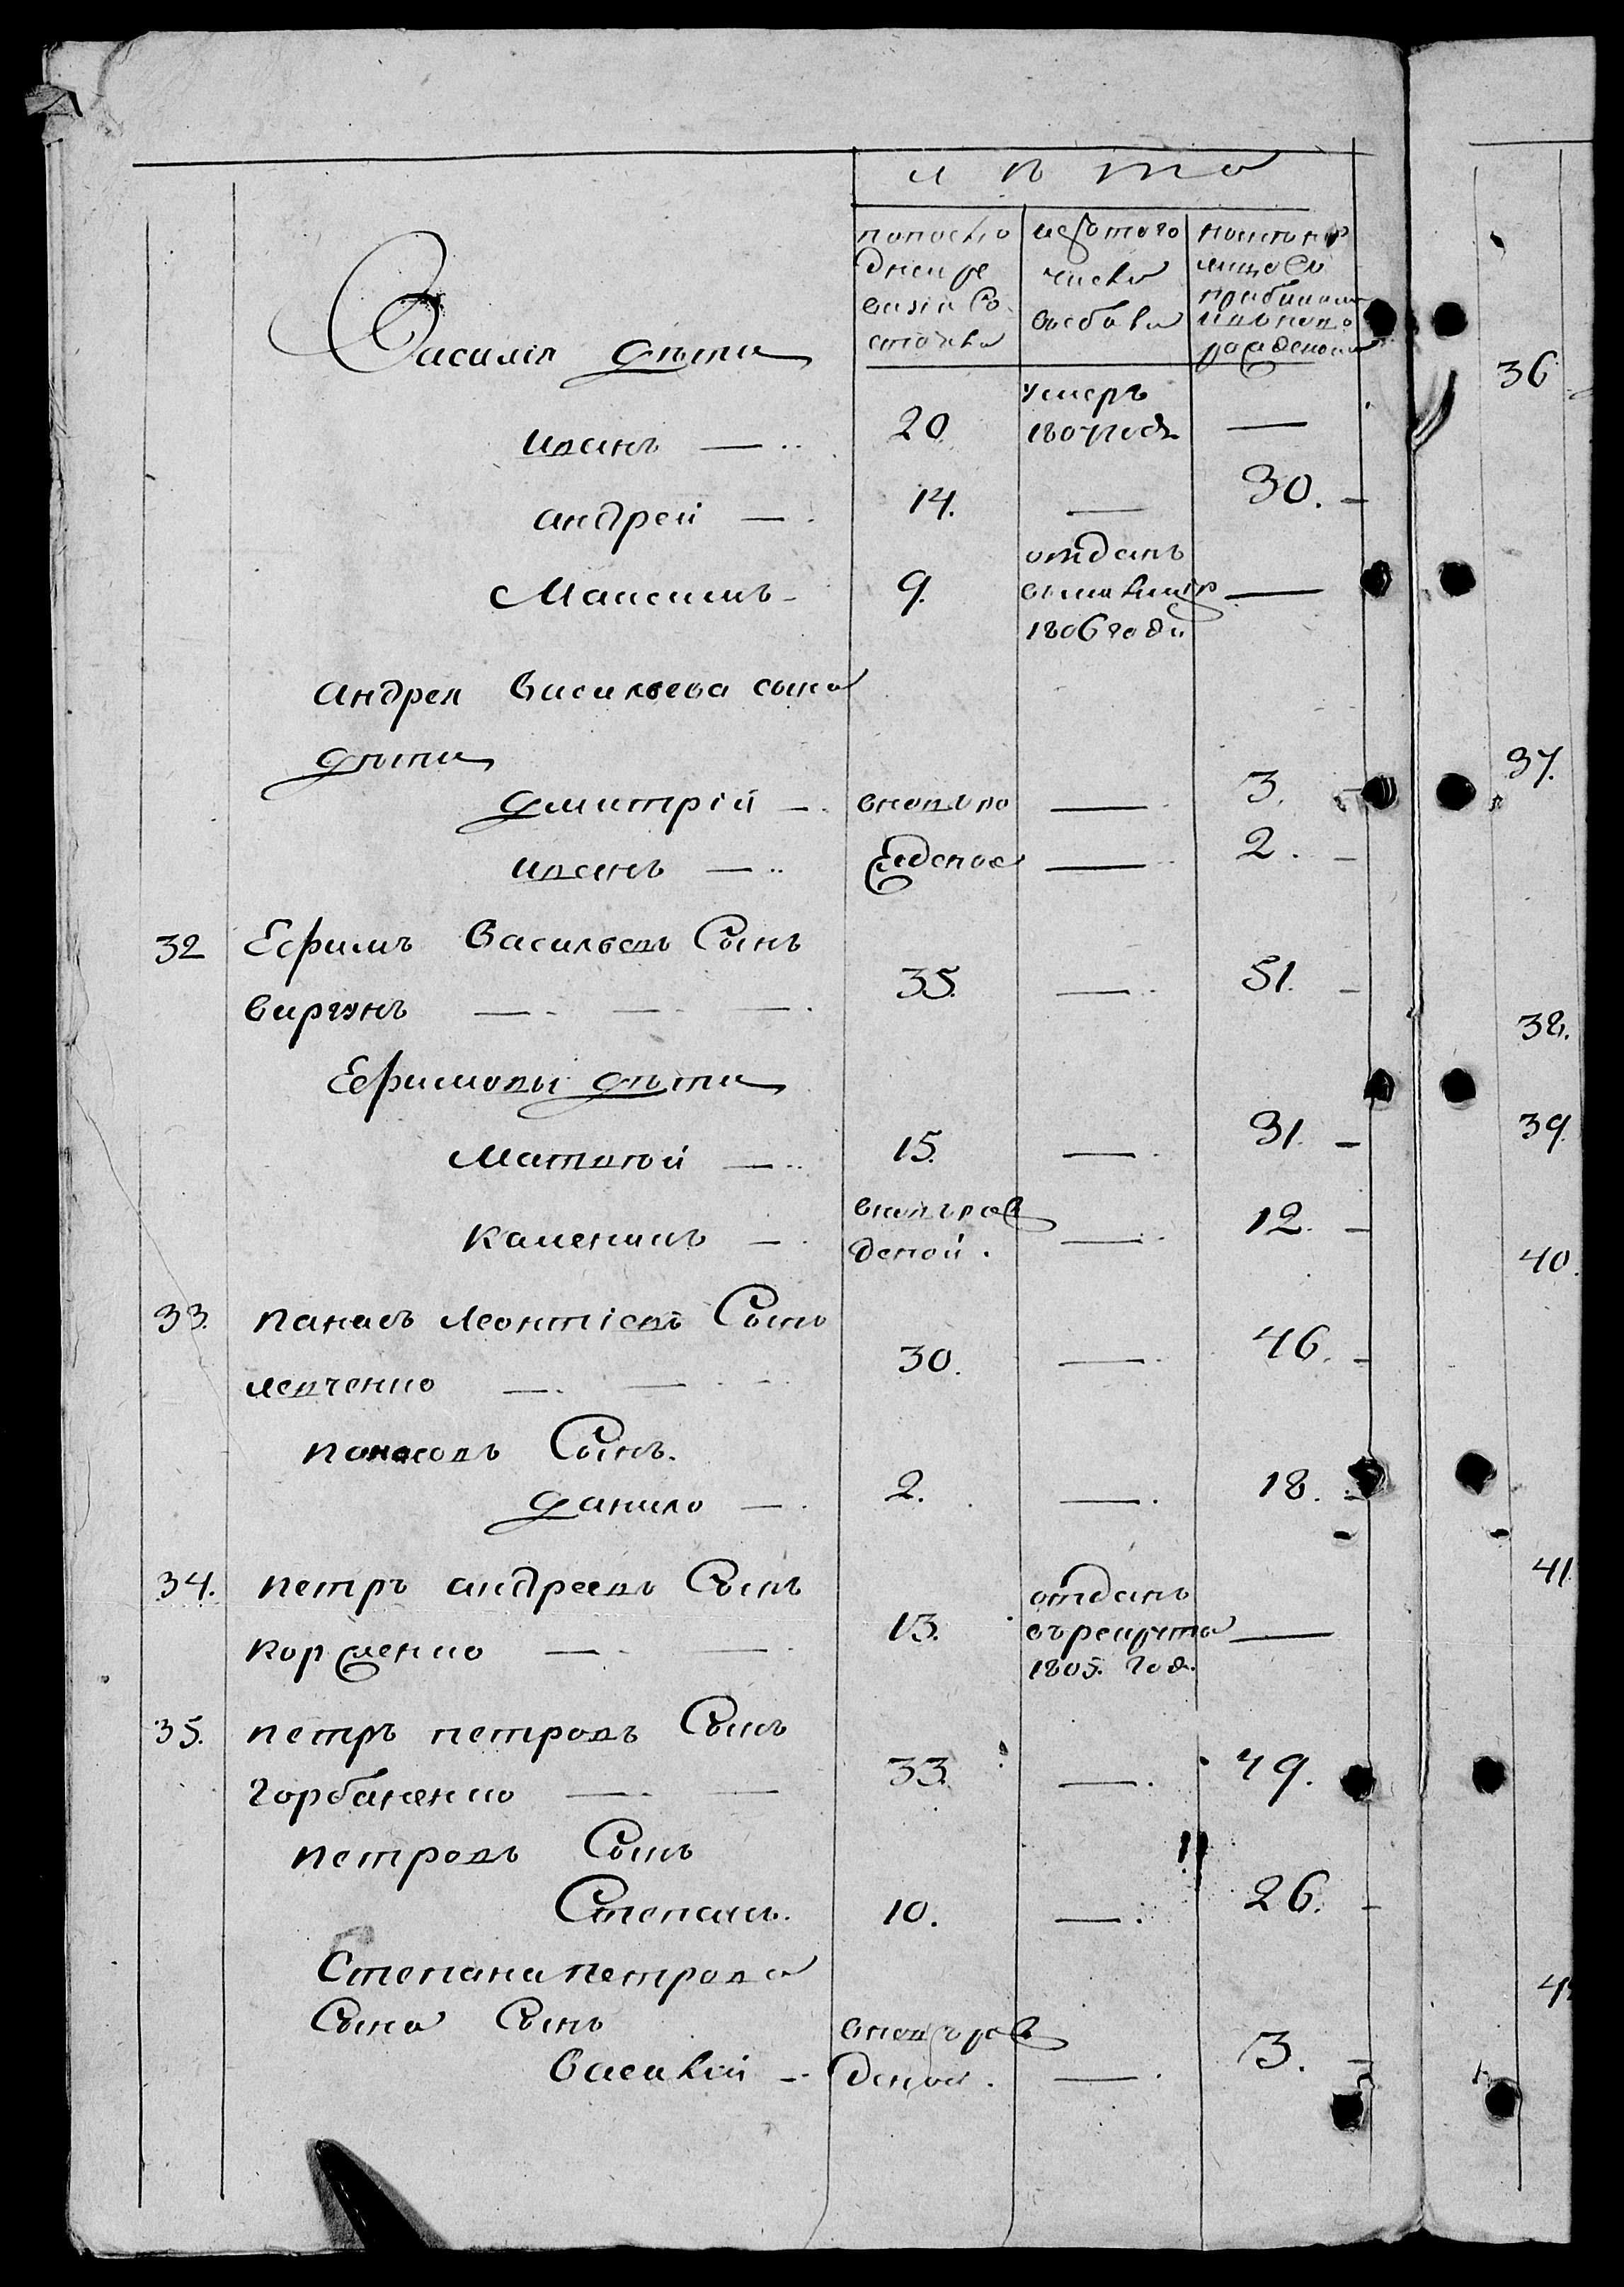 лѣта
попослѣ
дней ре
визіи Со
стояло
исъ того
числа
выбыло
Василія дѣти
Иванъ — 20. умеръ 1807 годѣ —
андрей — 14. — 30.
Максимъ 9. отданъ
1806 года —
андрея Васильева сына
дѣти
Дмитрій — вновъ ро — 3.
Иванъ — жденое — 2.
32 Ефимъ Васильевъ Сынъ
Виргунъ — 35. — 51.
Ефимовы дѣти
Матвѣй — 15. — 31.
Каленикъ — вновъ рож
деной. — 12.
33. Панасъ Леонтіевъ Сынъ
левченко — 30. — 46.
Панасовъ Сынъ.
Данило — 2. — 18.
34. Петръ андреевъ Сынъ
Корженко — 13. отданъ
въ рекруты —
1805. год.
35. Петръ петровъ Сынъ
Горбаненко — 33. — 49.
петровъ Сынъ
Степанъ. 10. — 26.
Степана петрова
Сына Сынъ вновъ рож
Василій — деной. — 3.
36
37.
38.
39.
40.
41.